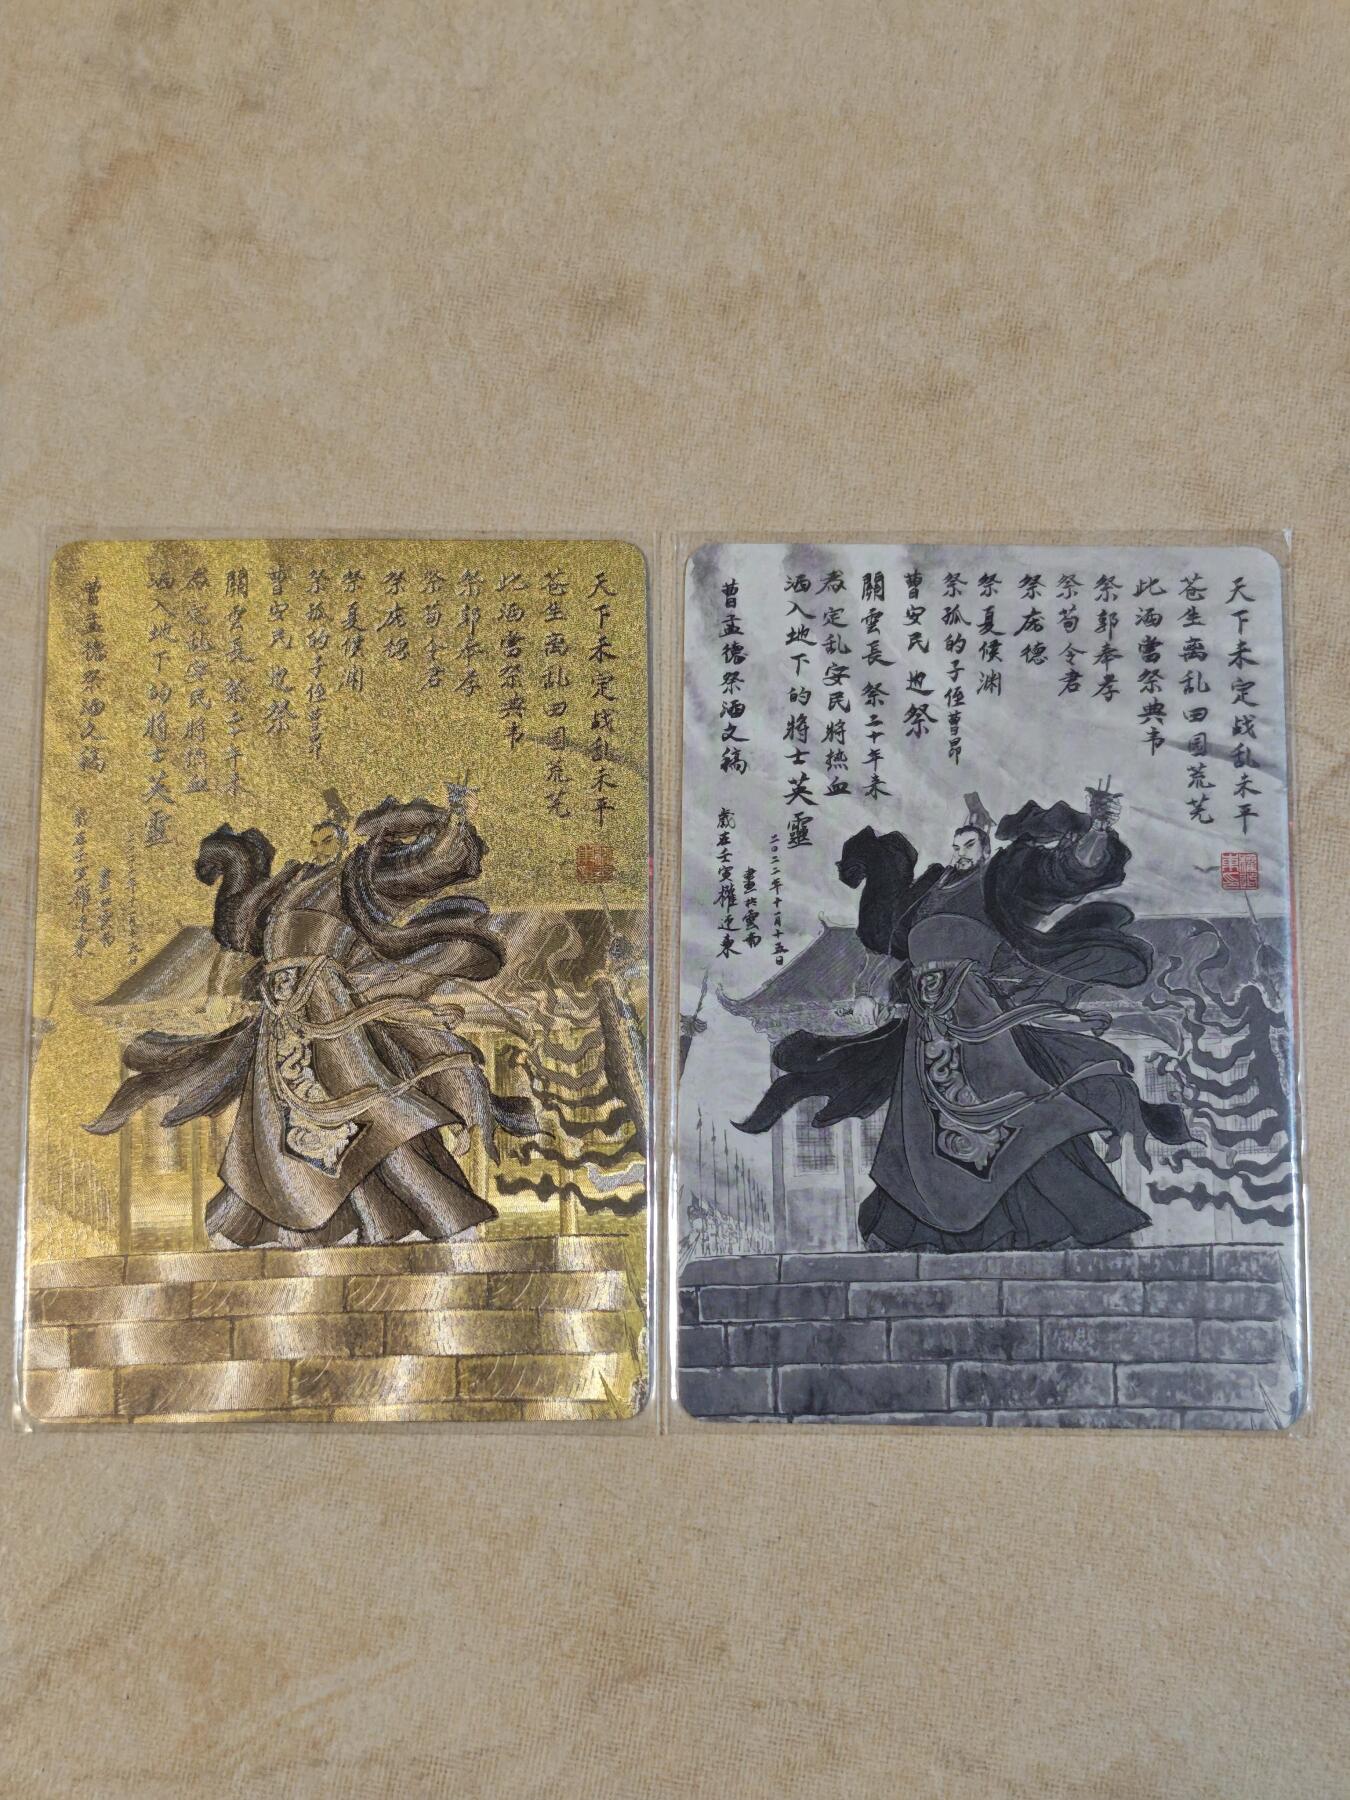 天下未定战乱未平
苍生离乱田园荒芜
此酒當祭典韦
祭郭奉孝
祭荀令君
祭庞德
祭夏侯渊
祭孤的子侄曹昂
曹安民 也祭
關雲長 祭二十年来
為定乱安民將热血
洒入地下的將士英靈
曹孟德祭酒文稿
二〇二二年十一月十五日
畫於雲南
歲在壬寅權迎東
天下未定战乱未平
苍生离乱田园荒芜
此酒當祭典韦
祭郭奉孝
祭荀令君
祭庞德
祭夏侯渊
祭孤的子侄曹昂
曹安民 也祭
關雲長 祭二十年来
為定乱安民將热血
洒入地下的將士英靈
曹孟德祭酒文稿
二〇二二年十一月十五日
畫於雲南
歲在壬寅權迎東